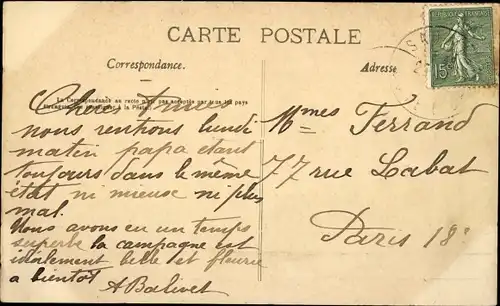 CARTE POSTALE
Correspondance.
Adresse
La Correspondance au recto n'est pas acceptée par tous les pays
étrangers. (Se renseigner à la Poste)
REPUBLIQUE FRANCAISE
15c
Chers Amies
nous rentrons lundi
matin papa étant
toujours dans le même
état ni mieuse ni plus
mal.
Nous avons eu un temps
superbe la campagne est
idéalement belle et fleurie
a bientot
A Balivet
Mmes Ferrand
77 rue Labat
Paris 18e